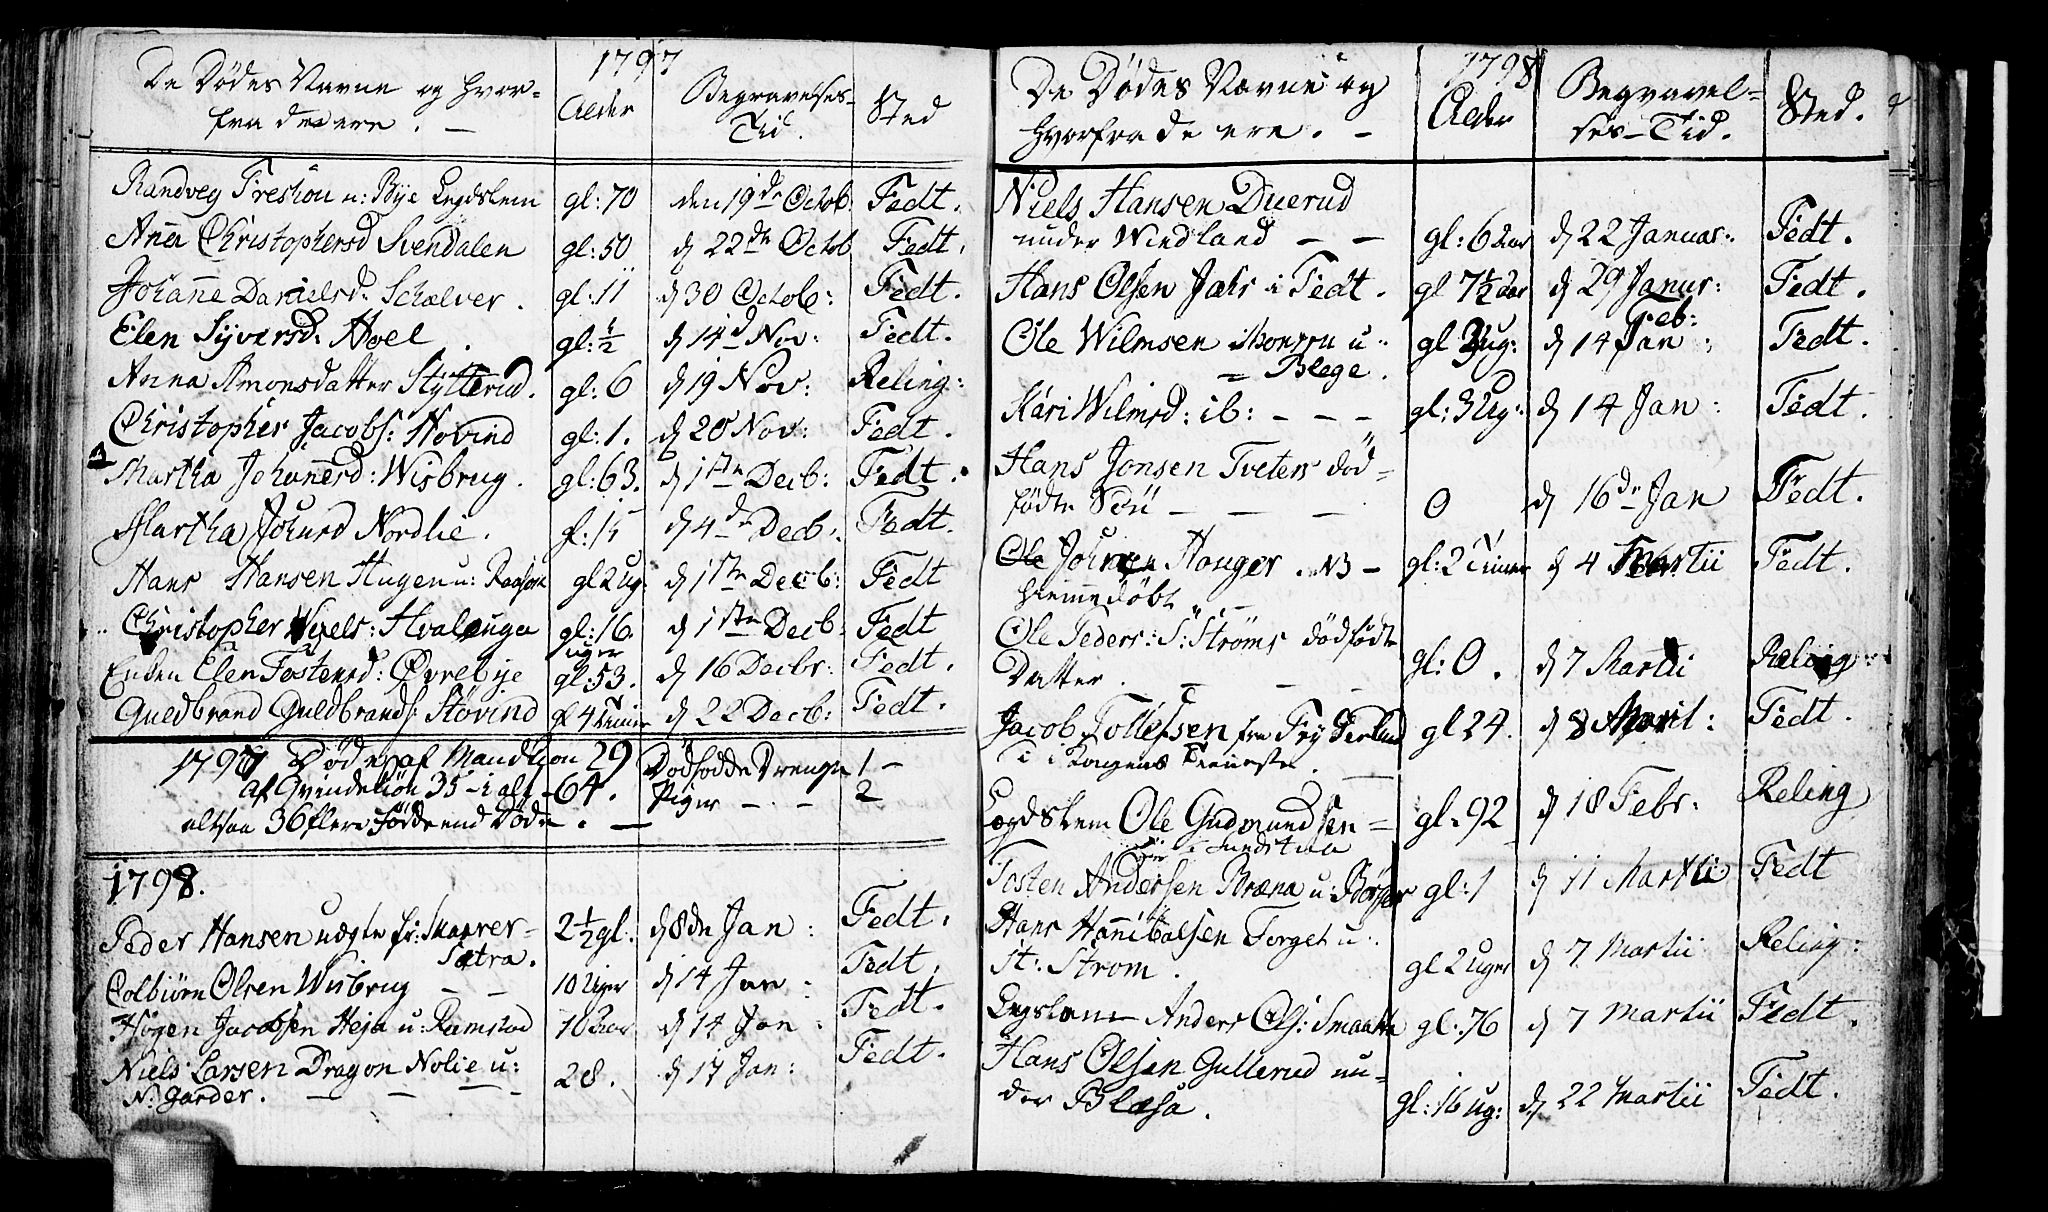 1797
De Dødes Navne og hvor-
fra de ere. —
Alder
Begravelses-
Tid.
Sted
Randveg Treskou u: Bye Legdslem gl: 70 den 19de Octob: Fedt.
Anna Christophersd Svendalen gl: 50 d 22de Octob Fedt.
Johanne Danielsd: Schælver. gl: 11 d 30 Octob: Fedt.
Elen Syversd: Hoel gl: ½ d 14d Nov: Fedt.
Anna Amonsdatter Stytterud. gl: 6 d 19 Nov: Reling:
Christopher Jacobs: Hovind gl: 1. d 20 Nov: Fedt.
Martha Johanesd: Wisbrug. gl: 63. d 1ste Decb: Fedt.
Martha Johnsd Nordlie. d 4de Decb: Fedt.
Hans Hansen Hugen u: gl 2 ug d 1ste Decb: Fedt
Christopher Niels: Hvalouga gl: 16. uger d 1ste Decb: Fedt
Enken Elen Tostensd: Øvrebye gl: 53. d 16 Decbr: Fedt.
Guldbrand Guldbrands: Hovind gl 4 Timer d 22 Decb: Fedt.
1797 Døde af Mandkjøn 29 Dødfødde Drenge 1 —
af Qvindekiøn 35 — i alt — 64. Piger — — 2
altsaa 36 flere Fødde end Døde. —
1798.
Peder Hansen uægte fr: Maarer-
Sætra. 2½ gl: d 8de Jan: Fedt.
Colbiørn Olsen Wisbrug — — 10 Uger d 14 Jan: Fedt.
Høgen Jacobsen Heja u: Ramstad 10 Aar d 14 Jan: Fedt.
Niels Larsen Dragon Nolie u: 28. d 17 Jan: Fedt.
N: Garder. — — —
1798
De Dødes Navne og
hvorfra de ere. —
Alder
Begravel-
ses-Tid.
Sted.
Niels Hansen Duerud
under Windland — — gl: 6 Aar d 22 Januar: Fedt.
Hans Olsen Jahr i Fedt. gl 7½ Aar d 29 Janur: Fedt.
Feb:
Ole Wilmsen u: gl 3 Ug: d 14 Jan: Fedt.
= Blege.
Kari Wilmsd: ib: — — — gl: 3 Ug: d 14 Jan: Fedt.
Hans Jonsen Tveters død-
fødte Søn — — — 0 d 16de Jan Fedt.
Ole Johnsen Hauger. NB — gl: 2 Timer d 4 Martii Fedt.
hiemmedøbt —
Ole Peders: S: Strøms dødfødte
Datter. — — — gl: 0. d 7 Martii Reling:
Jacob Tollefsen fra gl 24. d 8 April: Fedt.
i Kongens Tieneste. —
Legdslem Ole Gudmundsen = gl. 92 d 18 Febr: Reling
Tosten Andersen Bræna u: Børter gl: 1 d 11 Martii Fedt
Hans Hannibalsen Torget u:
St: Strøm. gl 2 Uger d 7 Martii Reling:
Legslem Anders Ols: Smaatta gl: 76 d 7 Martii Fedt.
Hans Olsen Gullerud un-
der Blæsa. gl: 16 ug: d 22 Martii Fedt.